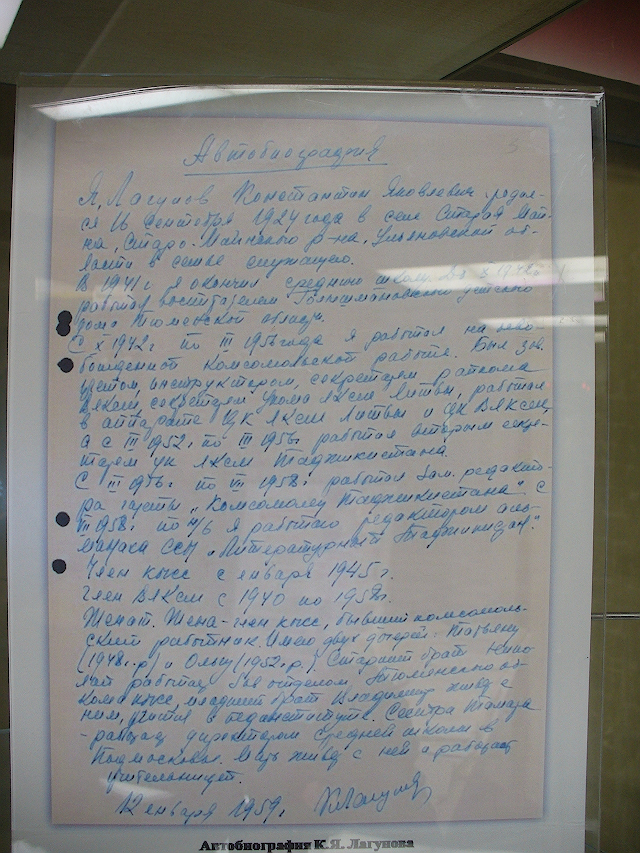 Автобиография
Я, Лагунов Константин Яковлевич родил-
ся 16 сентября 1924 года в селе Старая Май-
на, Старо-Майнского р-на, Ульяновской об-
ласти в семье служащего.
В 1941 г. я окончил среднюю школу. До X 1942г.
работал воспитателем Голышмановского детского
дома Тюменской области.
С X 1942г по III 1956 года я работал на осво-
божденной комсомольской работе. Был зав.
учетом, инструктором, секретарем райкома
ВЛКСМ, секретарем укома ЛКСМ Литвы, работал
в аппарате ЦК ЛКСМ Литвы и ЦК ВЛКСМ,
а с III 1952г. по III 1956г работал вторым секре-
тарем ЦК ЛКСМ Таджикистана.
С III 1956г по VII 1958г работал зам. редакто-
ра газеты „Комсомолец Таджикистана". С
VII 1958г по н/в я работаю редактором аль-
манаха ССП „Литературный Таджикистан".
Член КПСС с января 1945г.
Член ВЛКСМ с 1940 по 1958г.
Женат. Жена-член КПСС, бывший комсомоль-
ский работник. Имею двух дочерей: Татьяну
(1948г.р.) и Ольгу (1952г.р.). Старший брат
работает зав. отделом Тюменского об-
кома КПСС, младший брат Владимир живет с
ним, учится в пединституте. Сестра Тамара
- работает директором средней школы в
Подмосковье. Мать живет с ней и работает
учительницей.
12 января 1959г. КЛагунов
Автобиография К.Я. Лагунова